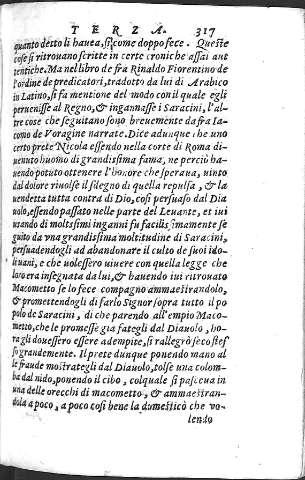 TERZA. 317
quanto detto li hauea, sì come doppo fece. Queste
cose si ritrouano scritte in certe croniche assai aut
tentiche. Ma nel libro de fra Rinaldo Fiorentino de
l'ordine de predicatori, tradotto da lui di Arabico
in Latino, si fa mentione del modo con il quale egli
peruenisse al Regno, & ingannasse i Saracini, l'al-
tre cose che seguitano sono breuemente da fra Ia-
como de Voragine narrate. Dice adunque che uno
certo prete Nicola essendo nella corte di Roma di-
uenuto huomo di grandissima fama, ne perciò ha-
uendo potuto ottenere l'honore che speraua, uinto
dal dolore riuolse il sdegno di quella repulsa, & la
uendetta tutta contra di Dio, cosi persuaso dal Dia
uolo, essendo passato nelle parte del Leuante, et iui
usando di moltissimi inganni fu facilissimamente se
guito da vna grandissima moltitudine di Saracini,
persuadendogli ad abandonare il culto de suoi ido-
li uani, e che uolessero uiuere con quella legge che
loro era insegnata da lui, & hauendo iui ritrouato
Macometto se lo fece compagno ammaestrandolo,
& promettendogli di farlo Signor sopra tutto il po
polo de Saracini, di che parendo all'empio Maco-
metto, che le promesse gia fategli dal Diauolo, ho-
ra gli douessero essere adempite, si rallegrò seco stes
so grandemente. Il prete dunque ponendo mano al
le fraude mostrategli dal Diauolo, tolse una colom-
ba dal nido, ponendo il cibo, col quale si pasceua in
una delle orecchi di macometto, & ammaestran-
dola a poco, a poco così bene la domesticò che vo-
lendo